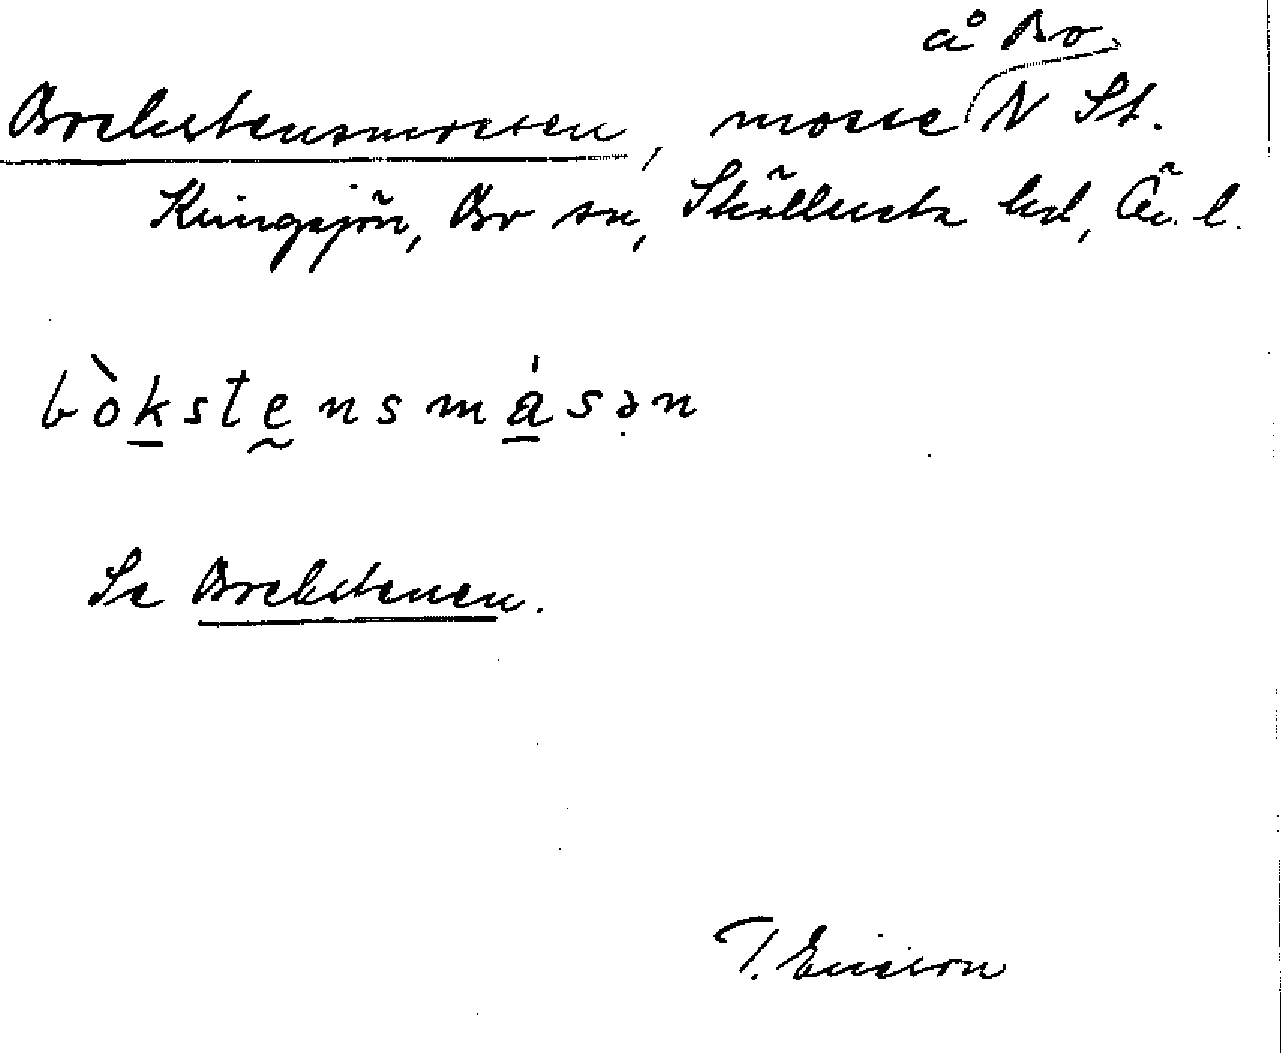 å Bo
Bockstensmossen, mosse N St.
Bo sn, Sköllersta hd, Ör. l.
bòkstensmásən
Se Bockstenen.
T. Ericson